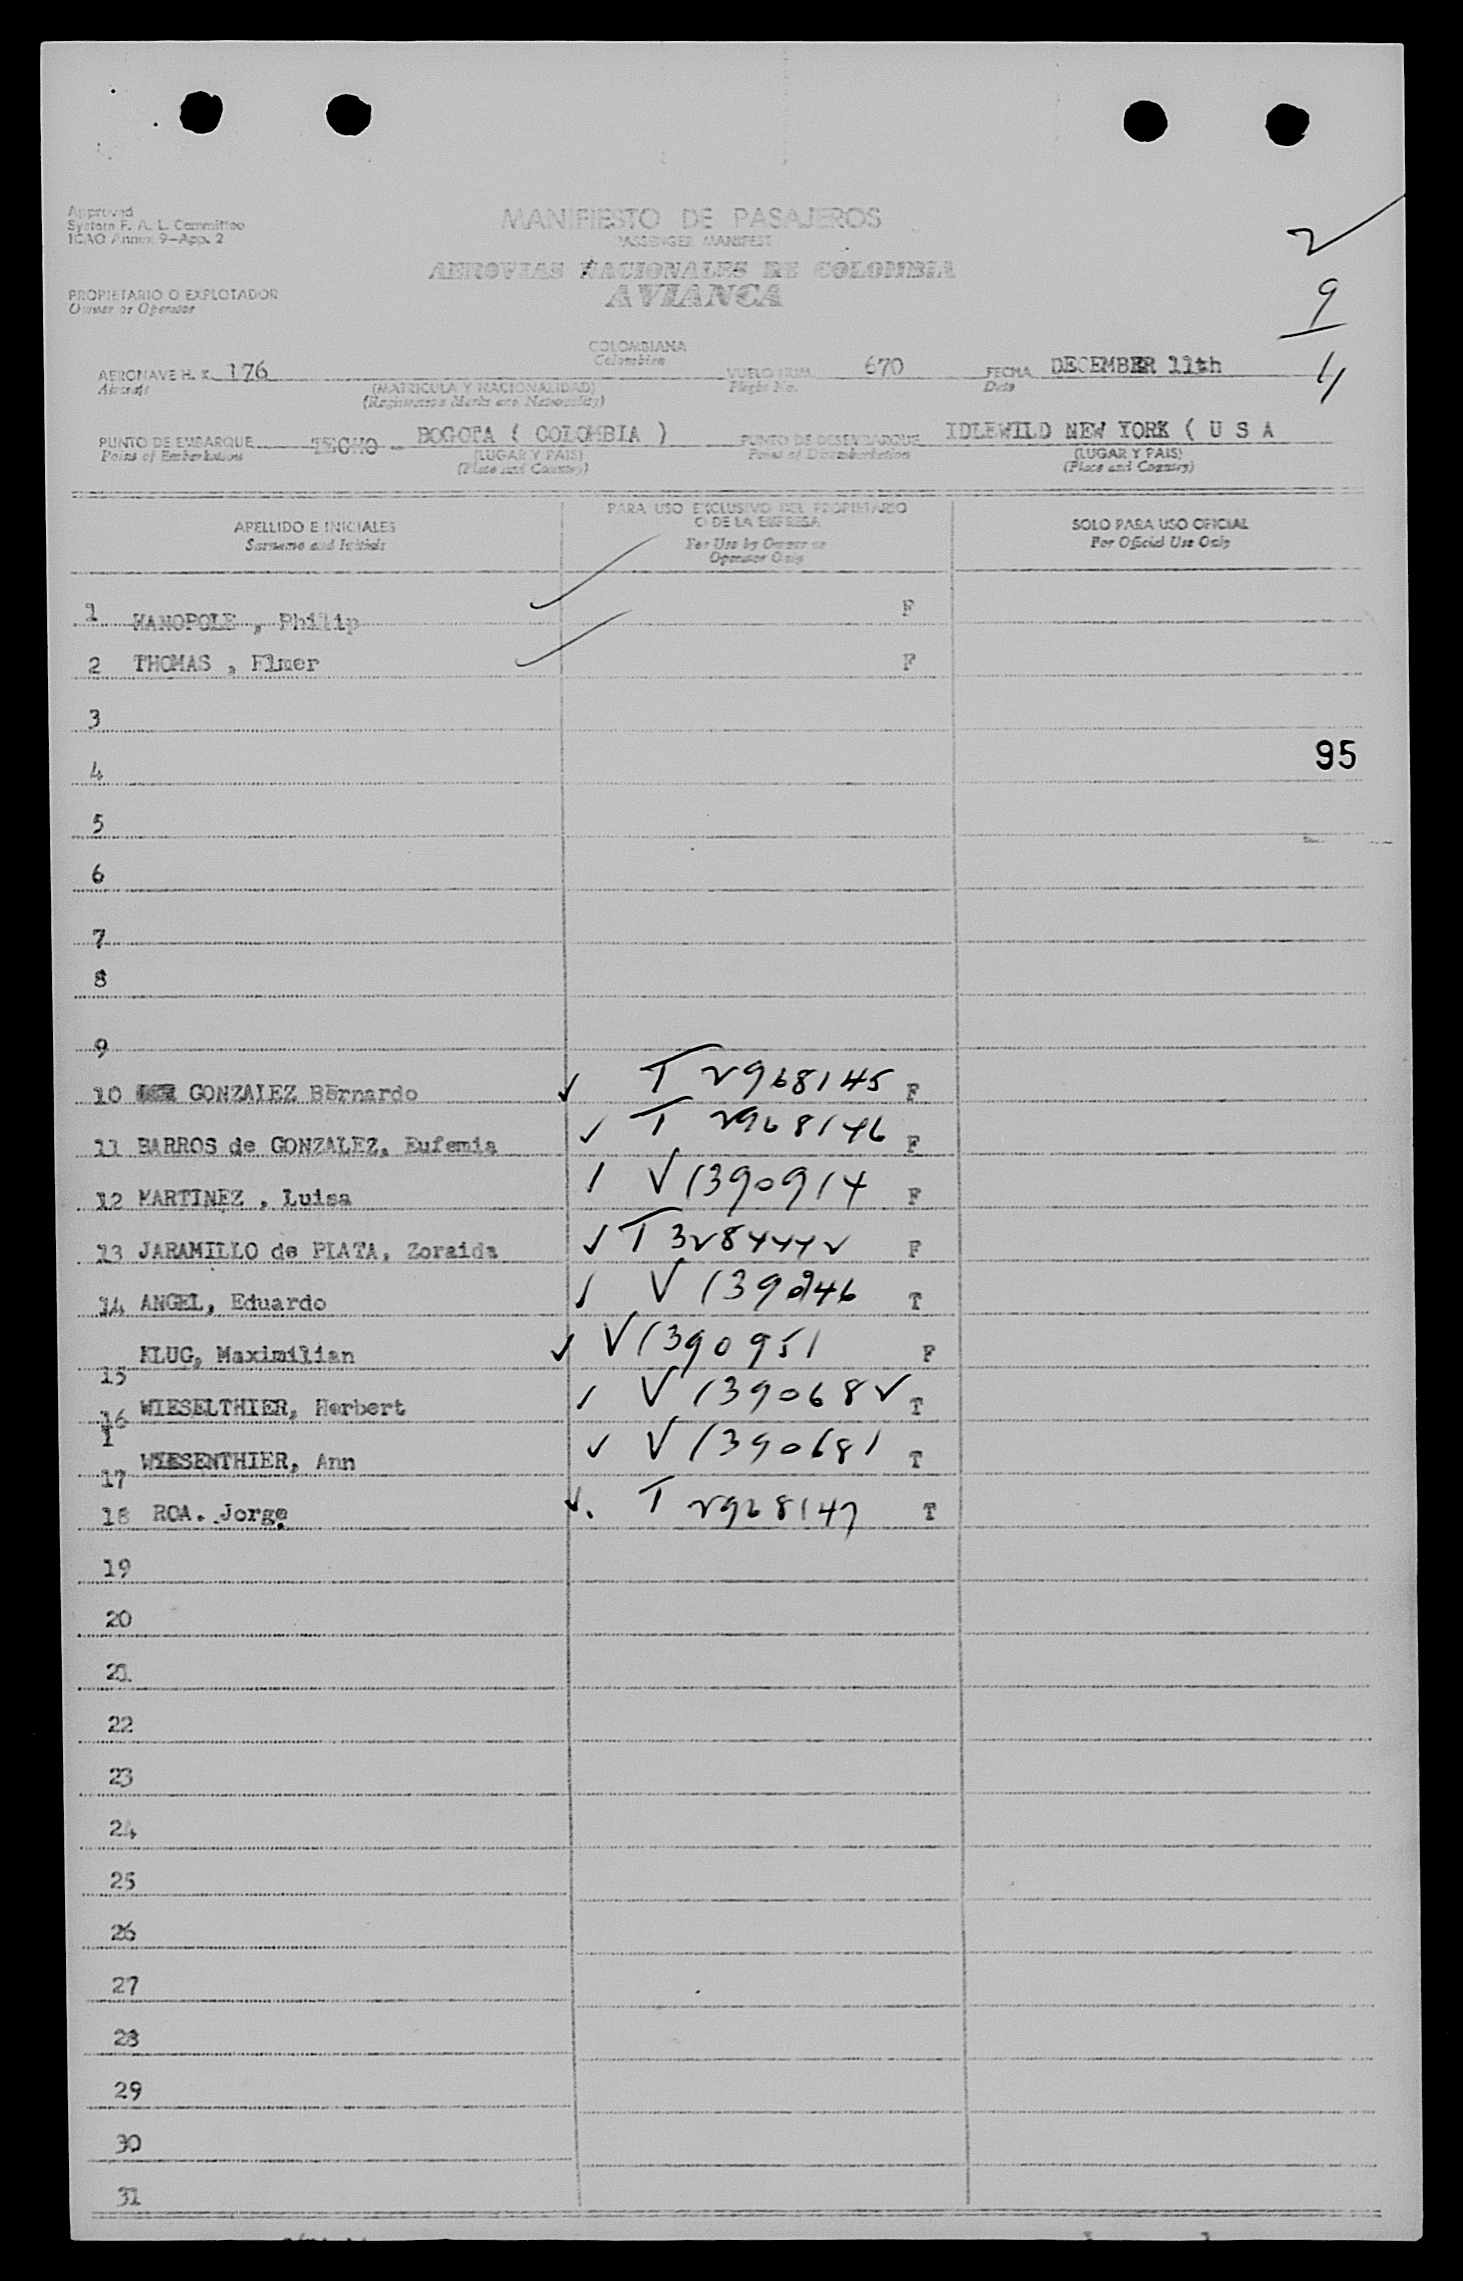 Approved
System F. A. L. Committee
ICAO Annex 9-App. 2
MANIFIESTO DE PASAJEROS
PASSENGER MANIFEST
AEROVIAS NACIONALES DE COLOMBIA
AVIANCA
PROPIETARIO O EXPLOTADOR
Owner or Operator
2
9
11
COLOMBIANA
Colombian
AERONAVE H. K. 176
Aircraft
(MATRICULA Y NACIONALIDAD)
(Registration Marks and Nationality)
VUELO NUM. 670
Flight No.
FECHA DECEMBER 11th
Date
PUNTO DE EMBARQUE TECHO - BOGOTA ( COLOMBIA )
Point of Embarkation
(LUGAR Y PAIS)
(Place and Country)
PUNTO DE DESEMBARQUE IDLEWILD NEW YORK ( U S A
Point of Disembarkation
(LUGAR Y PAIS)
(Place and Country)
APELLIDO E INICIALES
Surname and Initials
PARA USO EXCLUSIVO DEL PROPIETARIO
O DE LA EMPRESA
For Use by Owner or
Operator Only
SOLO PARA USO OFICIAL
For Official Use Only
1 , Philip F
2 THOMAS , Elmer F
3
95
4
5
6
7
8
9
10 GONZALEZ Bernardo T 2968145 F
11 BARROS de GONZALEZ, Eufemia T 2968146 F
12 MARTINEZ , Luisa V 1390914 F
13 JARAMILLO de PLATA, Zoraida T 3284442 F
14 ANGEL, Eduardo V 1390946 T
15 KLUG, Maximilian V 1390951 F
16 WIESELTHIER, Herbert V 1390682 T
17 WIESENTHIER, Ann V 1390681 T
18 ROA. Jorge T 2968147 T
19
20
21
22
23
24
25
26
27
28
29
30
31